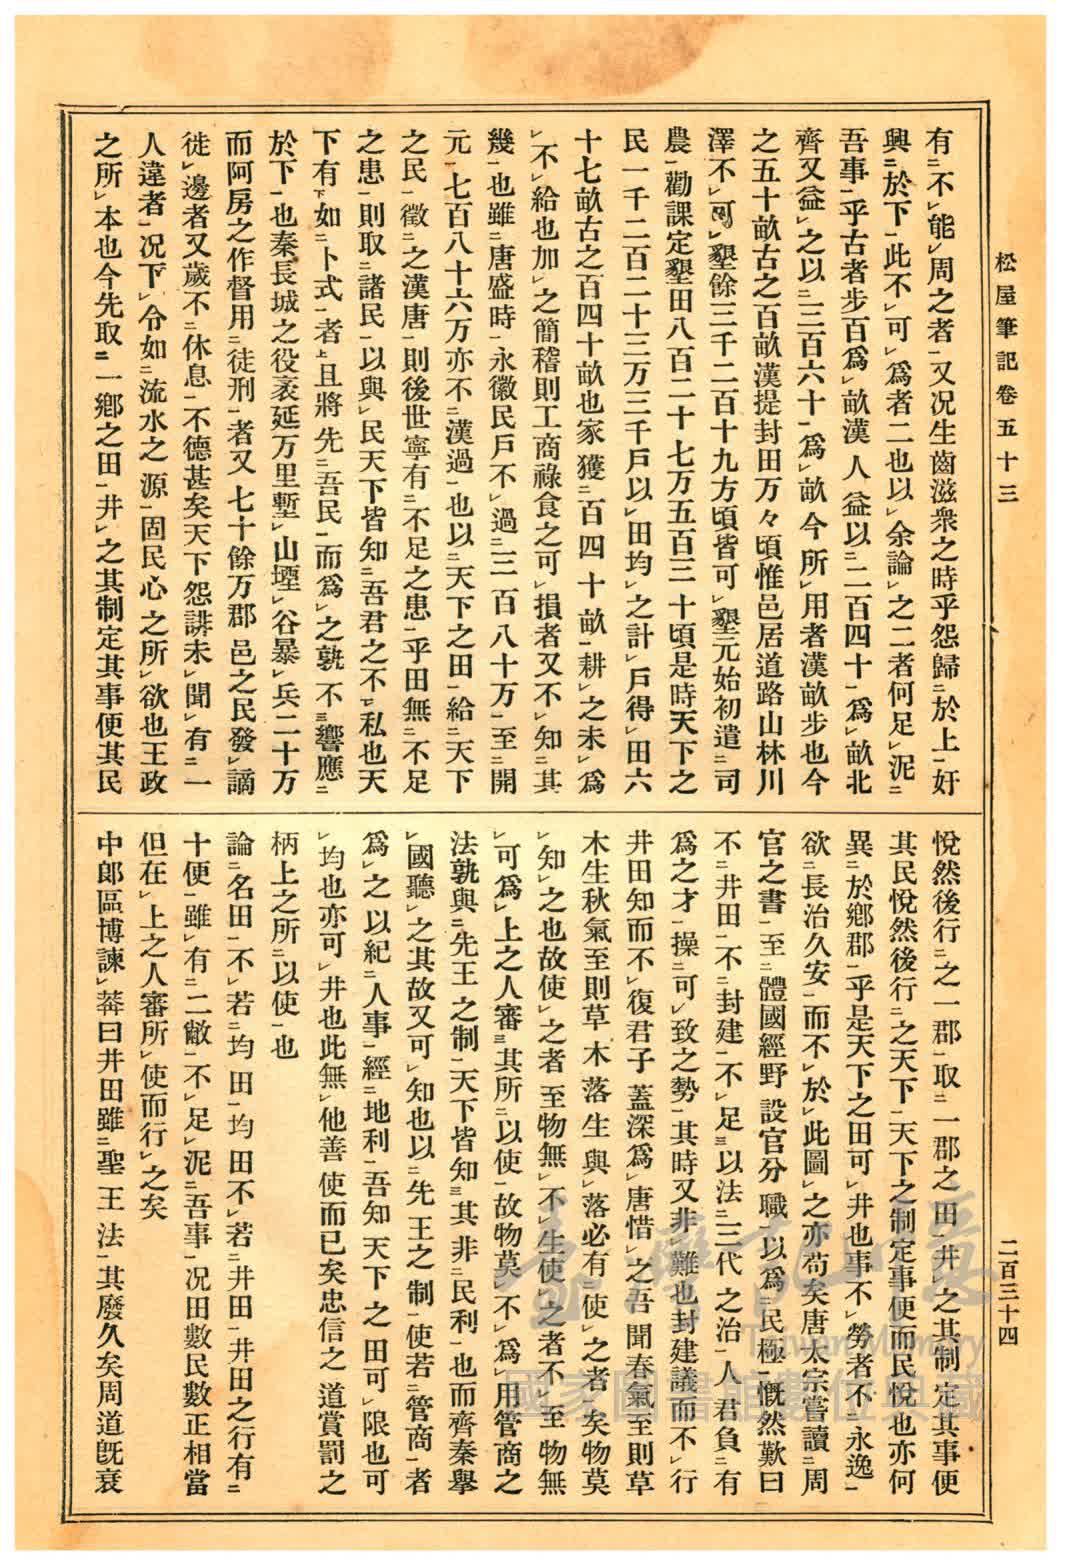 松屋筆記卷五十三
二百三十四
有㆓不㆑能㆑周之者㆒又況生齒滋衆之時乎怨歸㆓於上㆒奸
興㆓於下㆒此不㆑可㆑爲者二也以㆑余論㆑之二者何足㆑泥㆓
吾事㆒乎古者步百爲㆑畝漢人益以㆓二百四十㆒爲㆑畝北
齊又益㆑之以㆓三百六十㆒爲㆑畝今所㆑用者漢畝步也今
之五十畝古之百畝漢提封田万々頃惟邑居道路山林川
澤不㆑可㆑墾餘三千二百十九方頃皆可㆑墾元始初遣㆓司
農㆒勸課定墾田八百二十七万五百三十頃是時天下之
民一千二百二十三万三千戶以㆑田均㆑之計㆑戶得㆑田六
十七畝古之百四十畝也家獲㆓百四十畝㆒耕㆑之未㆑爲
㆑不㆑給也加㆑之簡稽則工商祿食之可㆑損者又不㆑知㆓其
幾㆒也雖㆓唐盛時㆒永徽民戶不㆑過㆓三百八十万㆒至㆓開
元㆒七百八十六万亦不㆓漢過㆒也以㆓天下之田㆒給㆓天下
之民㆒徵㆓之漢唐㆒則後世寧有㆓不足之患㆒乎田無㆓不足
之患㆒則取㆓諸民㆒以與㆑民天下皆知㆓吾君之不㆑私也天
下有㆘如㆓卜式㆒者㆖且將先㆓吾民㆒而爲㆑之孰不㆔響應㆓
於下㆒也秦長城之役袤延万里塹㆑山堙㆑谷暴㆑兵二十万
而阿房之作督用㆓徒刑㆒者又七十餘万郡邑之民發㆑謫
徙㆑邊者又歲不㆓休息㆒不德甚矣天下怨誹未㆑聞㆑有㆓一
人違者㆒況下㆑令如㆓流水之源㆒固民心之所㆑欲也王政
之所㆑本也今先取㆓一鄉之田㆒井㆑之其制定其事便其民
悅然後行㆓之一郡㆒取㆓一郡之田㆒井㆑之其制定其事便
其民悅然後行㆓之天下㆒天下之制定事便而民悅也亦何
異㆓於鄉郡㆒乎是天下之田可㆑井也事不㆑勞者不㆓永逸㆒
欲㆓長治久安㆒而不㆑於㆑此圖㆑之亦苟矣唐太宗嘗讀㆓周
官之書㆒至㆓體國經野設官分職㆒以爲㆓民極㆒慨然歎曰
不㆓井田㆒不㆓封建㆒不㆑足㆔以法㆓三代之治㆒人君負㆓有
爲之才㆒操㆓可㆑致之勢㆒其時又非㆑難也封建議而不㆑行
井田知而不㆑復君子蓋深爲㆑唐惜㆑之吾聞春氣至則草
木生秋氣至則草木落生與㆑落必有㆓使㆑之者㆒矣物莫
㆑知㆑之也故使㆑之者至物無㆑不㆑生使㆑之者不㆑至物無
㆑可㆑爲㆑上之人審㆔其所㆓以使㆒故物莫㆑不㆑爲㆑用管商之
法孰與㆓先王之制㆒天下皆知㆔其非㆓民利㆒也而齊秦擧
㆑國聽㆑之其故又可㆑知也以㆓先王之制㆒使若㆓管商㆒者
爲㆑之以紀㆓人事㆒經㆓地利㆒吾知天下之田可㆑限也可
㆑均也亦可㆑井也此無㆑他善使而已矣忠信之道賞罰之
柄上之所㆓以使㆒也
論㆓名田㆒不㆑若㆓均田㆒均田不㆑若㆓井田㆒井田之行有㆓
十便㆒雖㆑有㆓二敝㆒不㆑足㆑泥㆓吾事㆒況田數民數正相當
但在㆑上之人審所㆑使而行㆑之矣
中郎區博諫㆑莽曰井田雖㆓聖王法㆒其廢久矣周道旣衰
臺灣記憶
Taiwan Memory
國家圖書館數位典藏